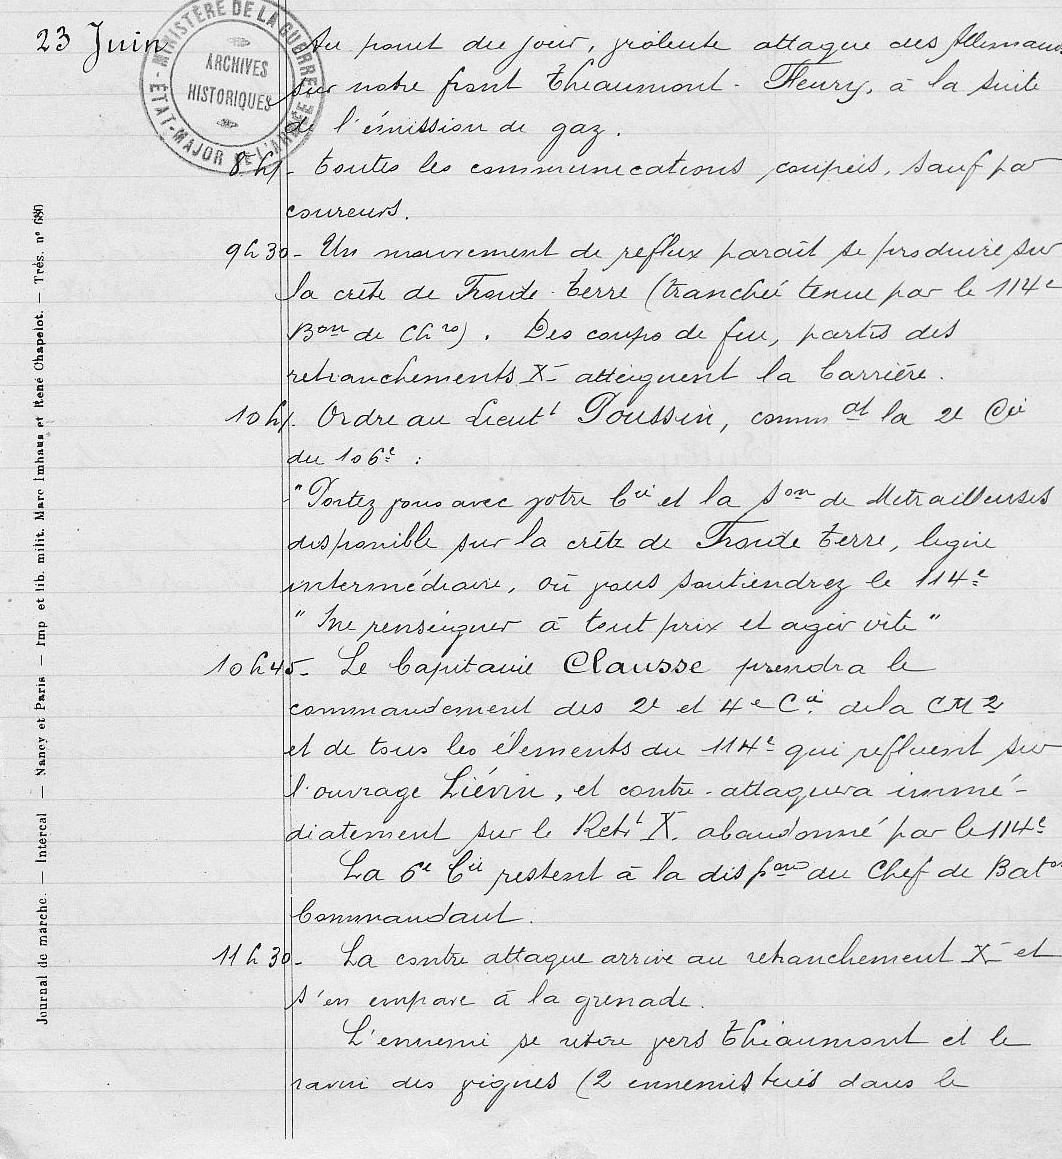 23 Juin
MINISTÈRE DE LA GUERRE
ARCHIVES
HISTORIQUES
ÉTAT-MAJOR DE L'ARMÉE
Au point du jour, violente attaque des Allemands
sur notre front Thiaumont - Fleury, à la suite
de l'émission de gaz.
8h. Toutes les communications coupées, sauf par
coureurs.
9h30 - Un mouvement de reflux paraît se produire sur
la crête de Froide-Terre (tranchée tenue par le 114e
Bon de Chrs). Des coups de feu, partis des
retranchements X atteignent la Carrière.
10h. Ordre au Lieutt Poussin, commdt la 2e Cie
du 106e :
"Portez vous avec votre Cie et la Son de Mitrailleuses
disponible sur la crête de Froide Terre, ligne
intermédiaire, où vous soutiendrez le 114e
"Me renseigner à tout prix et agir vite"
10h45 - Le Capitaine Clausse prendra le
commandement des 2e et 4e Cie de la CM2
et de tous les éléments du 114e qui refluent sur
l'ouvrage Liévin, et contre-attaquera immé-
diatement sur le Retrt X. abandonné par le 114e
La 6e Cie restent à la dispon du Chef de Baton
Commandant.
11h30 - La contre attaque arrive au retranchement X et
s'en empare à la grenade.
L'ennemi se retire vers Thiaumont et le
ravin des vignes (2 ennemis tués dans le
Journal de marche. — Intercal — Nancy et Paris — Imp et lib. milit. Marc Imhaus et René Chapelot. — Trés. nº 680